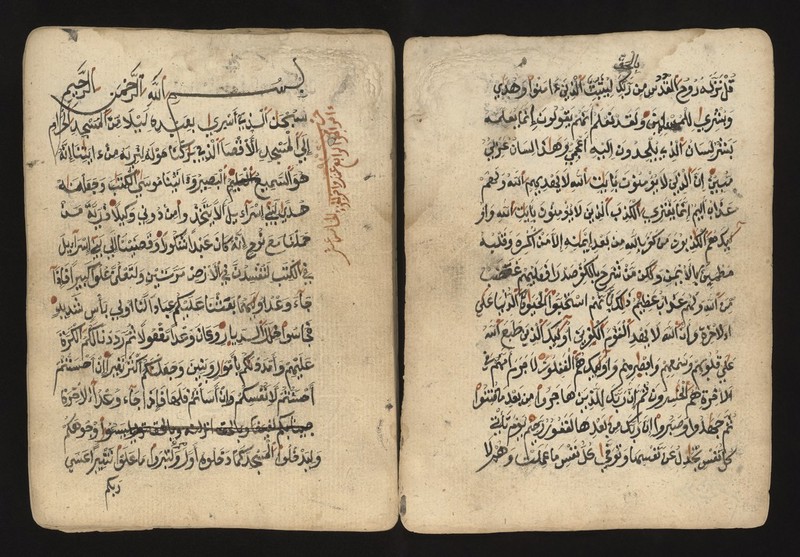 بالحق
قل نزله روح القدس من ربك ليثبت الذين ءامنوا وهدى
وبشرى للمسلمين ولقد نعلم انهم يقولون انما يعلمه
بشر لسان الذي يلحدون اليه اعجمي وهذا لسان عربي
مبين ان الذين لا يؤمنون بايت الله لا يهديهم الله ولهم
عذاب اليم انما يفتري الكذب الذين لا يؤمنون بايت الله واو
ليك هم الكذبون من كفر بالله من بعد ايمنه الا من اكره وقلبه
مطمين بالايمن ولكن من شرح بالكفر صدرا فعليهم غضب
من الله ولهم عذاب عظيم ذلك بانهم استحبوا الحيوة الدنيا على
الاخرة وان الله لا يهد القوم الكفرين اوليك الذين طبع الله
على قلوبهم وسمعهم وابصرهم واوليك هم الغفلون لا جرم انهم في
الاخرة هم الخسرون ثم ان ربك للذين هاجروا من بعد ما فتنوا
ثم جهدوا وصبروا ان ربك من بعدها لغفور رحيم يوم تاتي
كل نفس تجدل عن نفسها وتوفى كل نفس ما عملت وهم لا
بسم الله الرحمن الرحيم
سبحن الذي اسرى بعبده ليلا من المسجد الحرام
الى المسجد الاقصا الذي بركنا حوله لنريه من ءايتنا انه
هو السميع البصير وءاتينا موسى الكتب وجعلنه
هدى لبني اسراءيل الا يتخذوا من دوني وكيلا ذرية من
حملنا مع نوح انه كان عبدا شكورا وقضينا الى بني اسراءيل
في الكتب لتفسدن في الارض مرتين ولتعلن علوا كبيرا فاذا
جاء وعد اوليهما بعثنا عليكم عبادا لنا اولي باس شديد
فجاسوا خلل الديار وكان وعدا مفعولا ثم رددنا لكم الكرة
عليهم وامددنكم باموال وبنين وجعلنكم اكثر نفيرا ان احسنتم
احسنتم لانفسكم وان اساتم فلها فاذا جاء وعد الاخرة
ليسوا وجوهكم
وليدخلوا المسجد كما دخلوه اول مرة وليتبروا ما علوا تتبيرا عسى
ربكم